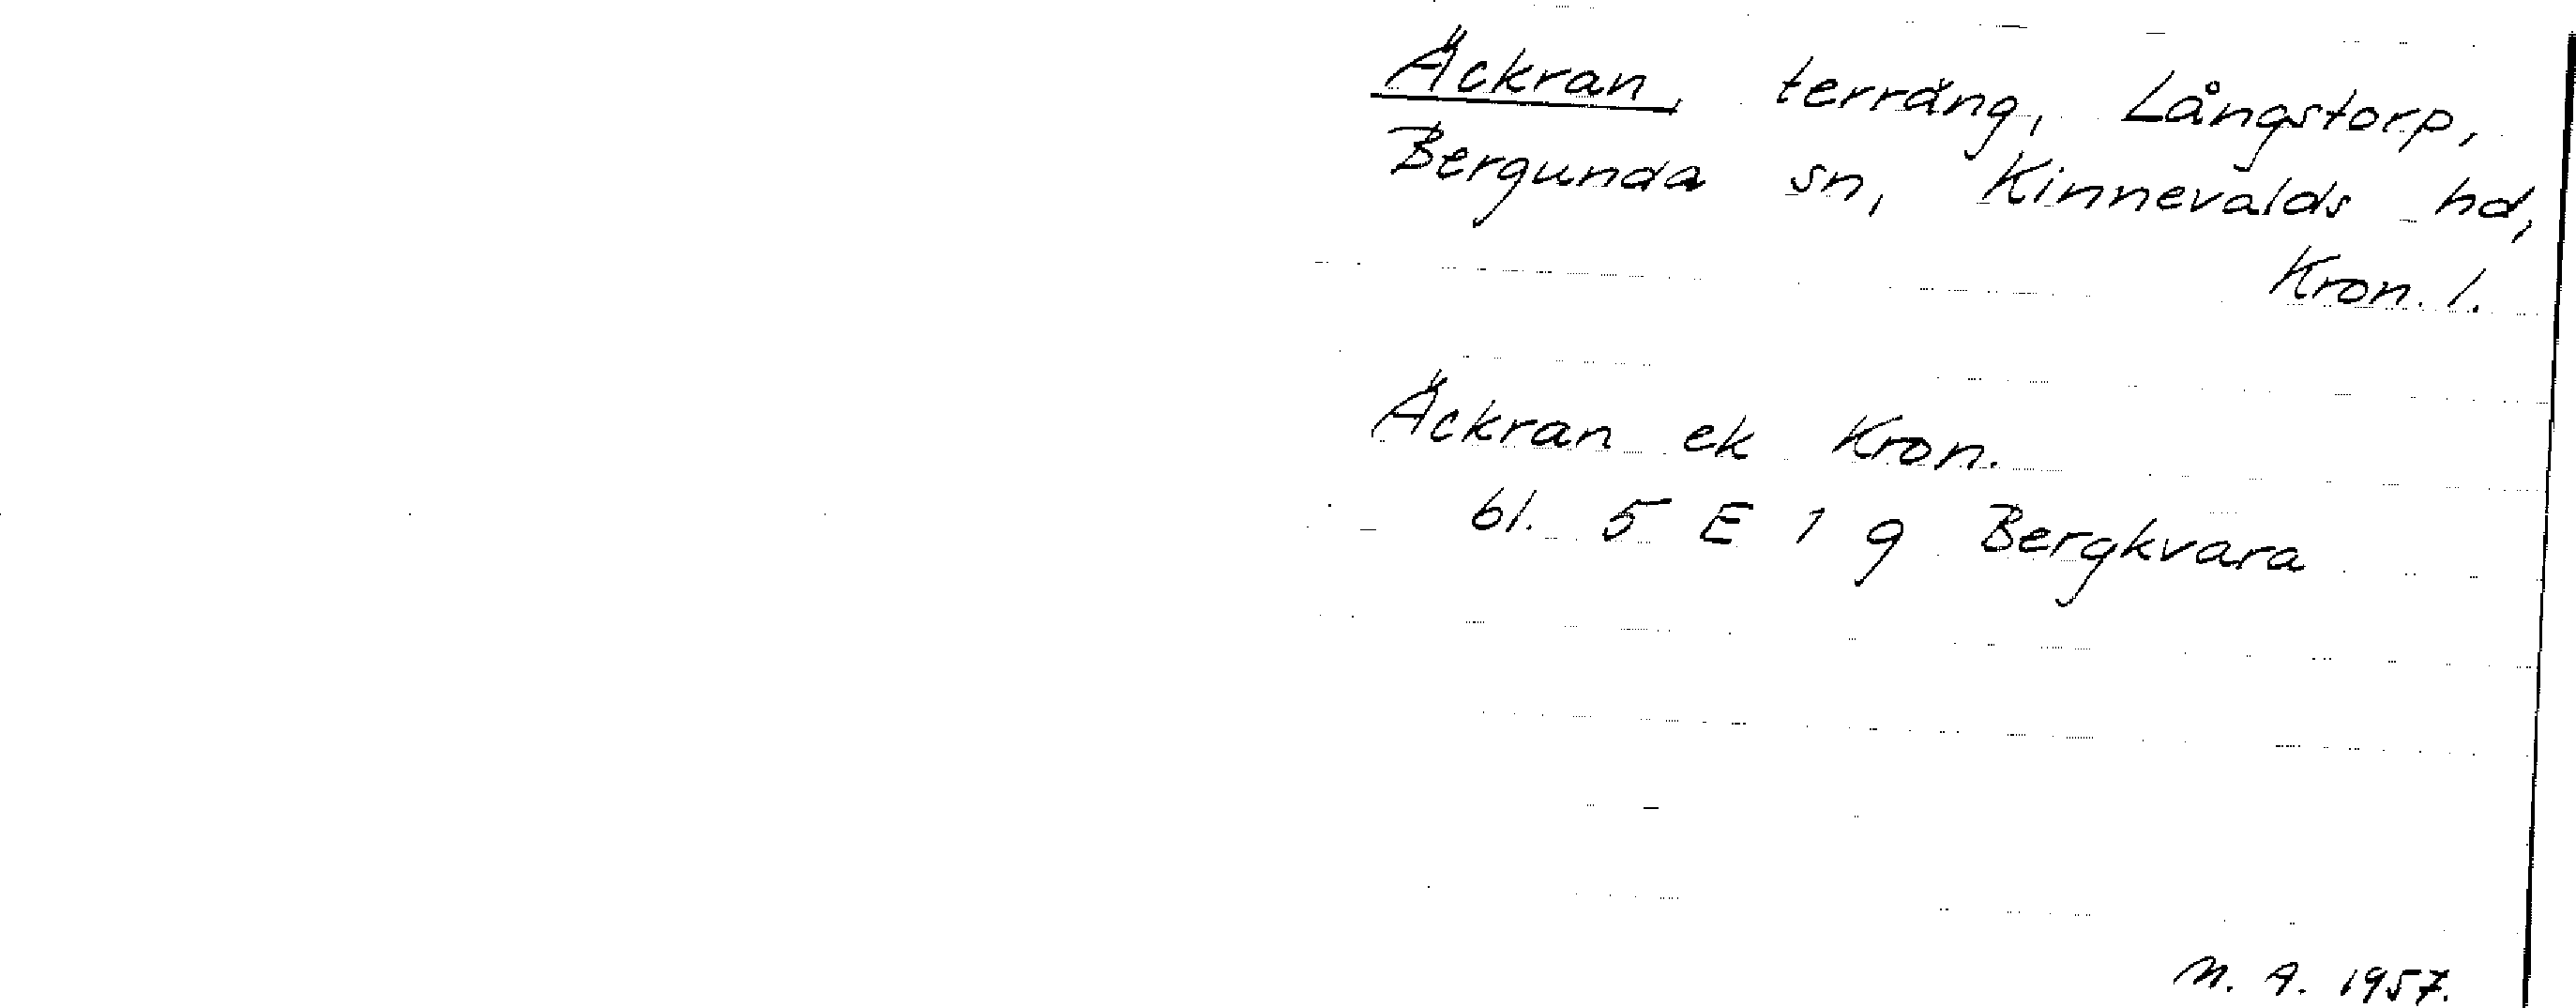 Äckran, terräng, Långstorp,
Bergunda sn, Kinnevalds hd,
Kron. l.
Äckran ek Kron.
bl. 5 E 1 g Bergkvara
M. A. 1957.